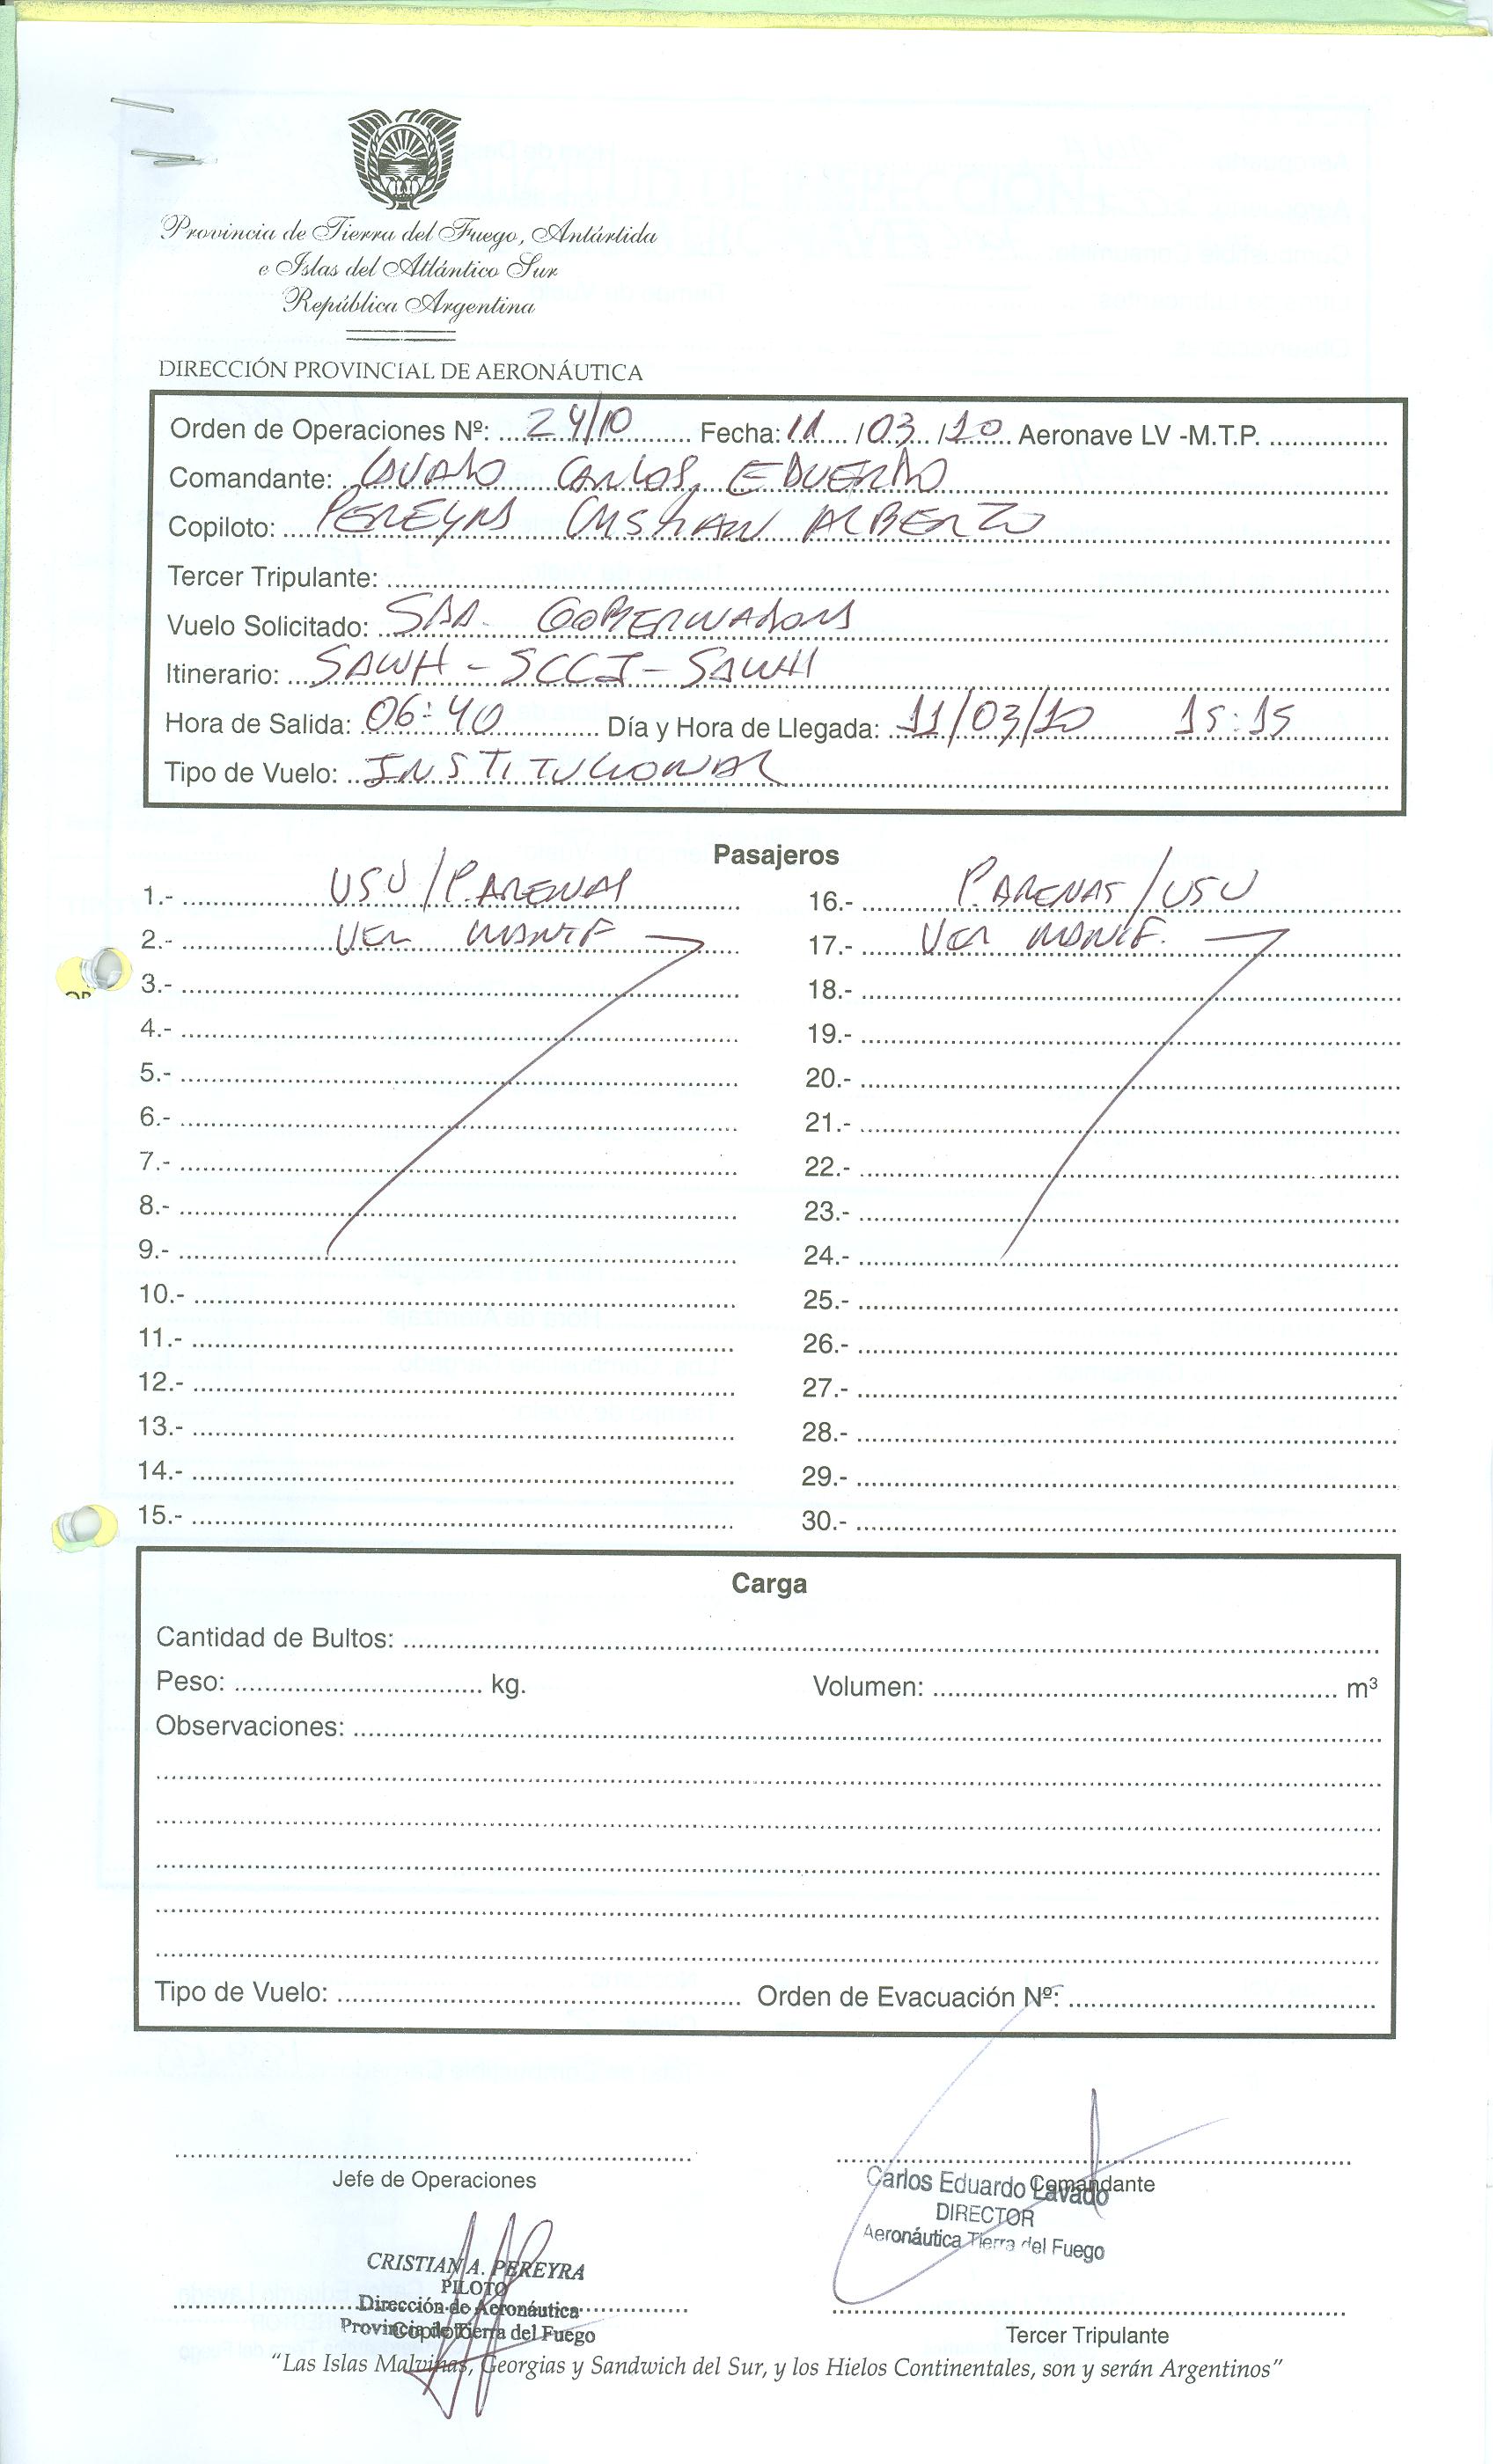 Provincia de Tierra del Fuego, Antártida
e Islas del Atlántico Sur
República Argentina
DIRECCIÓN PROVINCIAL DE AERONÁUTICA
Orden de Operaciones Nº: 24/10 Fecha: 11 / 03 / 10 Aeronave LV -M.T.P.
Comandante: LAVADO CARLOS EDUARDO
Copiloto: PEREYRA CRISTIAN ALBERTO
Tercer Tripulante:
Vuelo Solicitado: SRA. GOBERNADORA
Itinerario: SAWH - SCCI - SAWH
Hora de Salida: 06:40 Día y Hora de Llegada: 11/03/10 15:15
Tipo de Vuelo: INSTITUCIONAL
Pasajeros
1.- USU / P. ARENAS 16.- P. ARENAS / USU
2.- VER MANIF 17.- VER MANIF.
3.- 18.-
4.- 19.-
5.- 20.-
6.- 21.-
7.- 22.-
8.- 23.-
9.- 24.-
10.- 25.-
11.- 26.-
12.- 27.-
13.- 28.-
14.- 29.-
15.- 30.-
Carga
Cantidad de Bultos:
Peso: kg. Volumen: m³
Observaciones:
Tipo de Vuelo: Orden de Evacuación Nº:
Jefe de Operaciones Comandante
Carlos Eduardo Lavado
DIRECTOR
Aeronáutica Tierra del Fuego
CRISTIAN A. PEREYRA
PILOTO
Dirección de Aeronáutica
Provincia de Tierra del Fuego
Copiloto Tercer Tripulante
"Las Islas Malvinas, Georgias y Sandwich del Sur, y los Hielos Continentales, son y serán Argentinos"